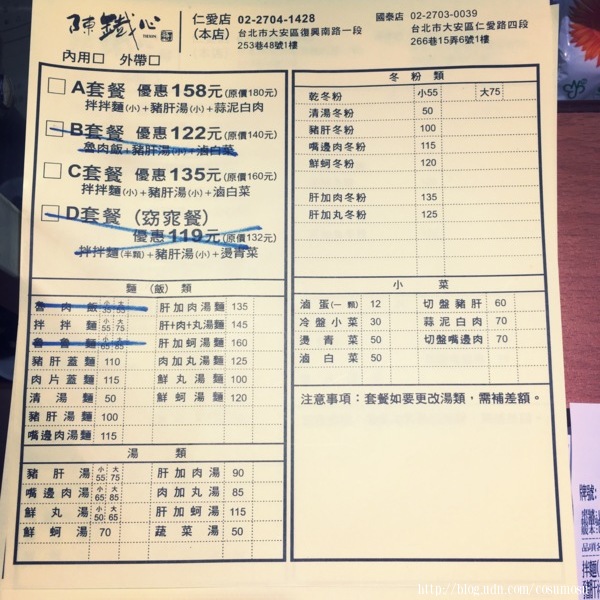 陳鐵心
仁愛店 02-2704-1428
(本店) 台北市大安區復興南路一段
253巷48號1樓
國泰店 02-2703-0039
台北市大安區仁愛路四段
266巷15弄6號1樓
內用□ 外帶□
□A套餐 優惠158元(原價180元)
拌拌麵(小)+豬肝湯(小)+蒜泥白肉
□B套餐 優惠122元(原價140元)
魯肉飯+豬肝湯(小)+滷白菜
□C套餐 優惠135元(原價160元)
拌拌麵(小)+豬肝湯(小)+滷白菜
□D套餐(窈窕餐)
優惠119元(原價132元)
拌拌麵(半顆)+豬肝湯(小)+燙青菜
麵(飯)類
魯肉飯 小35 大55 肝加肉湯麵 135
拌拌麵 小55 大75 肝+肉+丸湯麵 145
魯魯麵 小65 大85 肝加蚵湯麵 160
豬肝蓋麵 110 肉加丸湯麵 125
肉片蓋麵 115 鮮丸湯麵 100
清湯麵 50 鮮蚵湯麵 120
豬肝湯麵 100
嘴邊肉湯麵 115
湯類
豬肝湯 小55 大75 肝加肉湯 90
嘴邊肉湯 小65 大85 肉加丸湯 85
鮮丸湯 小50 大65 肝加蚵湯 115
鮮蚵湯 70 蔬菜湯 50
冬粉類
乾冬粉 小55 大75
清湯冬粉 50
豬肝冬粉 100
嘴邊肉冬粉 115
鮮蚵冬粉 120
肝加肉冬粉 135
肝加丸冬粉 125
小菜
滷蛋(一顆) 12 切盤豬肝 60
冷盤小菜 30 蒜泥白肉 70
燙青菜 50 切盤嘴邊肉 70
滷白菜 50
注意事項：套餐如要更改湯類，需補差額。
牌號:
品項名
拌拌麵(
http://blog.udn.com/cosamosu